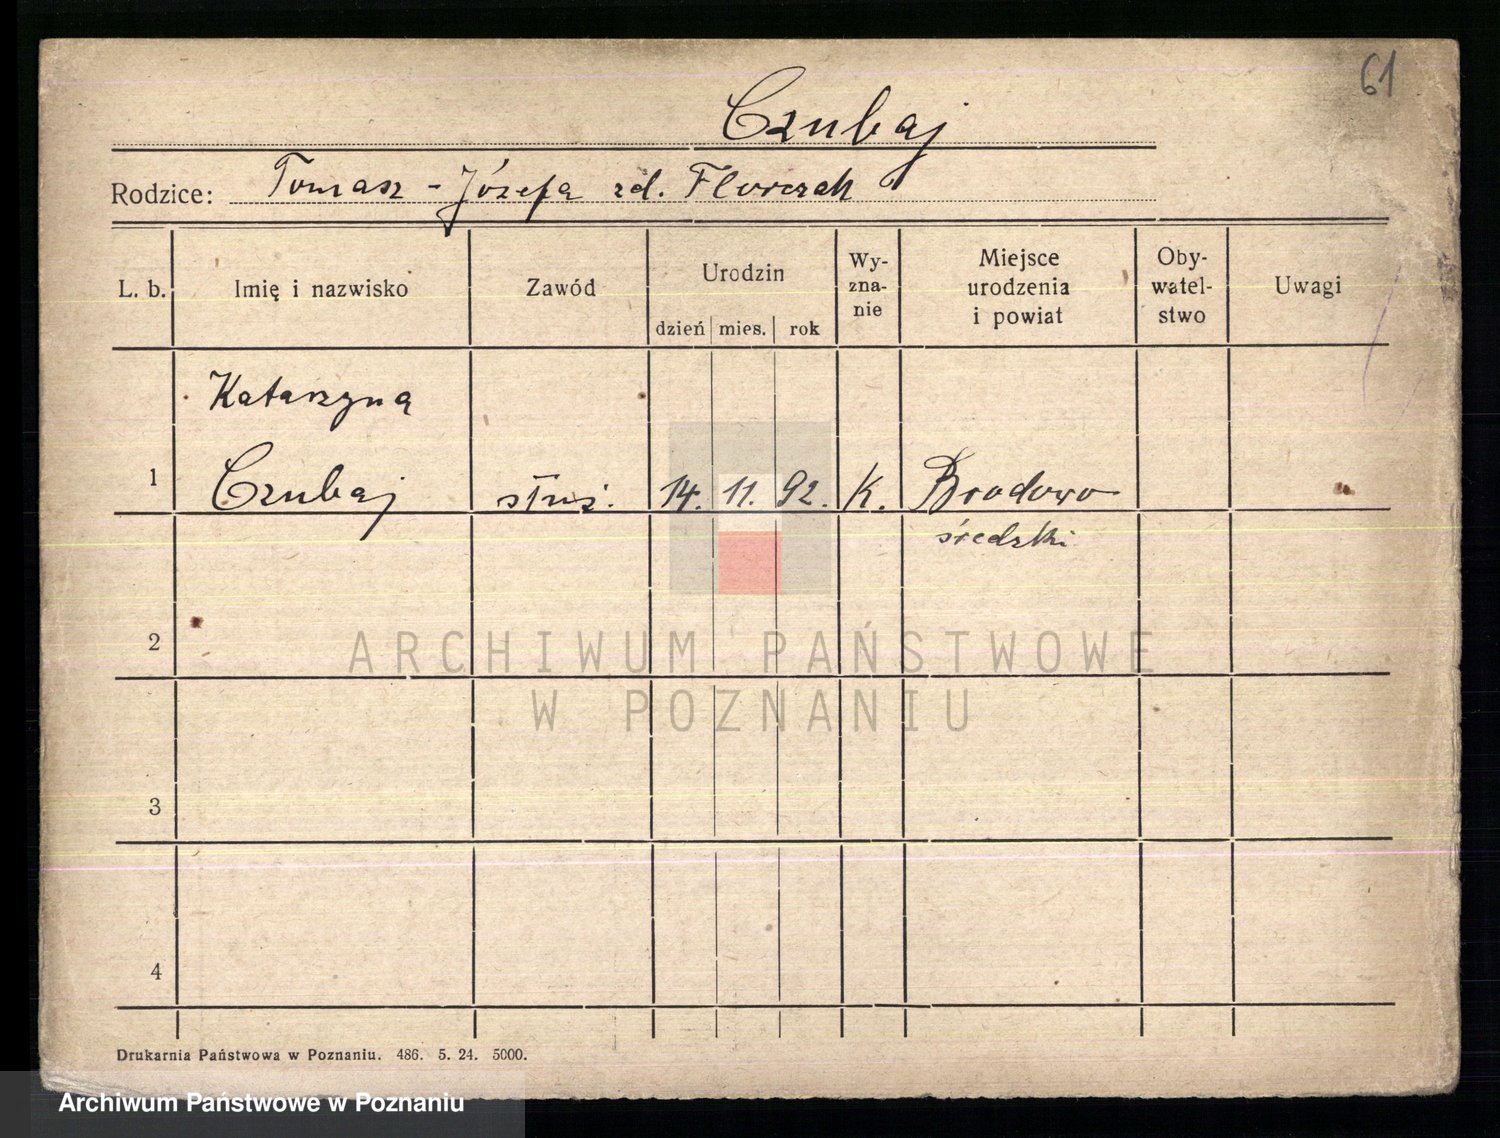 61
Czubaj
Rodzice: Tomasz - Józefa zd. Florczak
L. b. Imię i nazwisko Zawód Urodzin dzień mies. rok Wy-zna-nie Miejsce urodzenia i powiat Oby-watel-stwo Uwagi
Katarzyna
1 Czubaj służ. 14. 11. 92. K. Brodowo
średzki
2
ARCHIWUM PAŃSTWOWE
W POZNANIU
3
4
Drukarnia Państwowa w Poznaniu. 486. 5. 24. 5000.
Archiwum Państwowe w Poznaniu